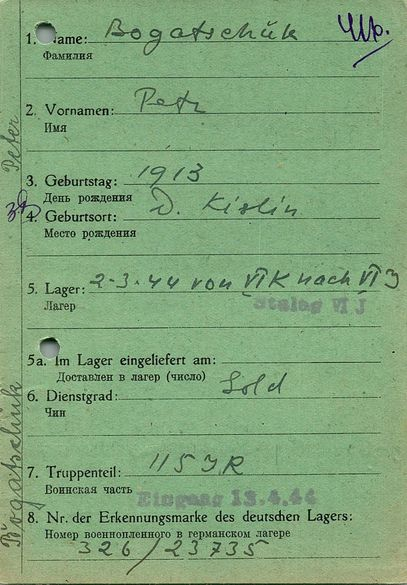 1. Name: Bogatschük
Фамилия
2. Vornamen: Petr
Имя
3. Geburtstag: 1913
День рождения
4. Geburtsort: D. Kislin
Место рождения
5. Lager: 2-3.44 von VI K nach VI J
Лагер
Stalag VI J
5a. Im Lager eingeliefert am:
Доставлен в лагер (число)
6. Dienstgrad: Sold
Чин
7. Truppenteil: 115 J.R
Воинская часть
Eingang 13.4.44
8. Nr. der Erkennungsmarke des deutschen Lagers:
Номер военнопленного в германском лагере
326/23735
Bogatschük Peter